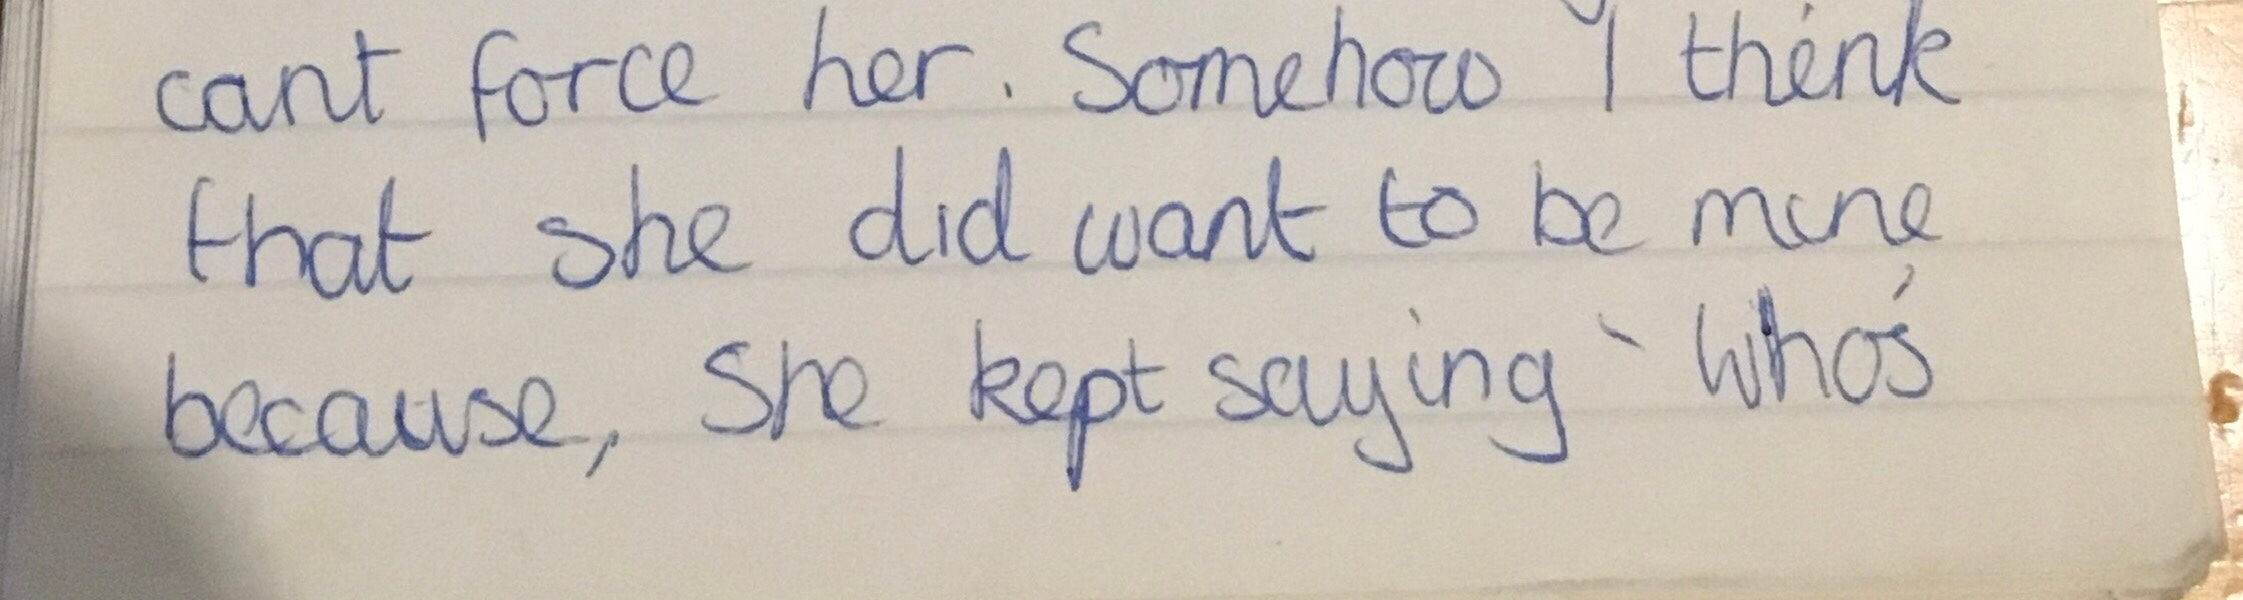 cant force her. Somehow I think
that she did want to be mine
because, She kept saying ` Who's